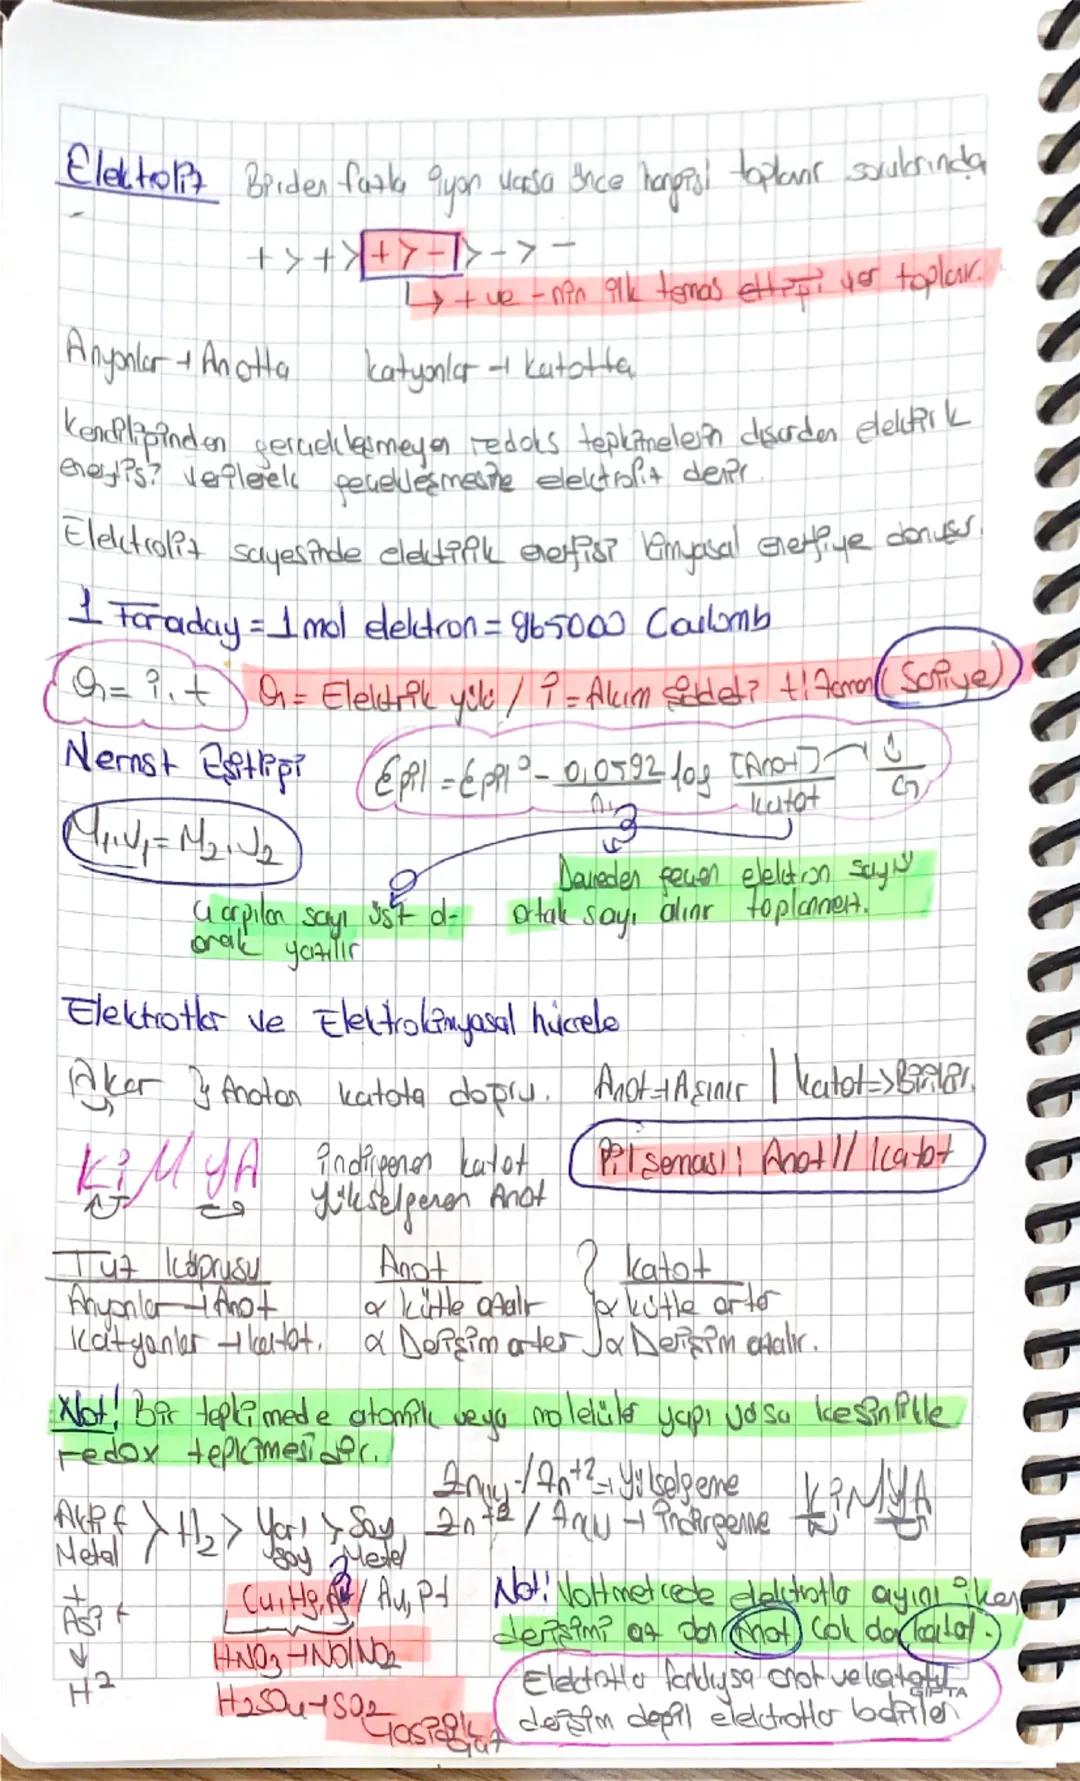 Elektroliz Birden fazla iyon varsa önce hangisi toplanır sorularında
+ > + > + > - > - > -
↳ + ve - nin ilk temas ettiği yer toplanır.
Anyonlar → Anotta katyonlar → katotta
Kendiliğinden gerçekleşmeyen redoks tepkimelerin dışarıdan elektrik
enerjisi verilerek gerçekleşmesine elektrolit denir.
Elektroliz sayesinde elektrik enerjisi kimyasal enerjiye dönüşür.
1 Faraday = 1 mol elektron = 965000 Coulomb
Q = i.t Q = Elektrik yükü / i = Akım şiddeti t: Zaman (Saniye)
Nernst Eşitliği Epil = Epil° - 0,0592 / n log [Anot] / katot → S / G
M₁.V₁ = M₂.V₂
Devreden geçen elektron sayısı
Çarpılan sayı üst o- ortak sayı alınır toplanmaz.
larak yazılır
Elektrotlar ve Elektrokimyasal hücrele
Akar } Anotan katota doğru. Anot → Aşınır | katot => Birikir.
KİMYA indirgenen katot Pil şeması: Anot // katot
yükselgenen Anot
Tuz köprüsu Anot katot
Anyonlar → Anot α kütle azalır α kütle artar
katyonlar → katot. α Derişim artar α Derişim azalır.
Not! Bir tepkimede atomik veya moleküler yapı varsa kesinlikle
redox tepkimesidir.
Zn / Zn⁺² → Yükselgeme KİMYA
Aktif > H₂ > Yarı > Soy Zn⁺² / Zn → indirgenme
Metal soy Metal
+ Cu, Hg, Ag / Au, Pt Not! Voltmetrede elektrotlar aynı iken
Asit derişimi az olan Anot çok olan katot.
↓ HNO₃ → NO/NO₂
H² Elektrotlar farklıysa anot ve katotu
H₂SO₄ → SO₂ derişim değil elektrotlar belirler
Gası çıkar